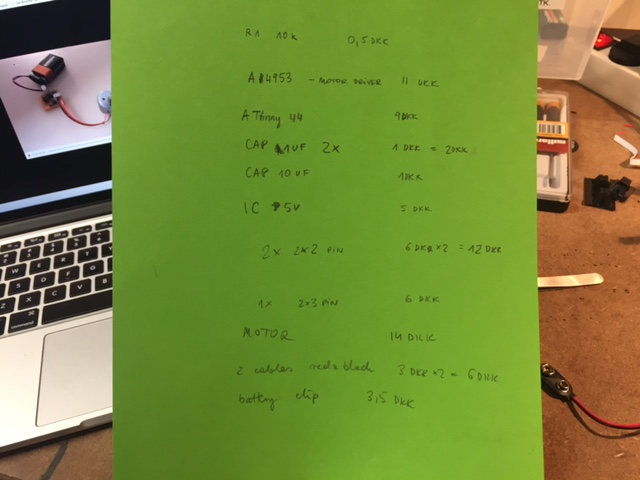 R1 10k 0,5 DKK
A4953 - MOTOR DRIVER 11 DKK
ATtiny 44 9DKK
CAP 1UF 2x 1 DKK = 2DKK
CAP 10 UF 1DKK
IC 5V 5 DKK
2x 2x2 PIN 6 DKK x2 = 12 DKK
1x 2x3 PIN 6 DKK
MOTOR 14 DKK
2 cables red & black 3 DKK x2 = 6 DKK
battery clip 3,5 DKK